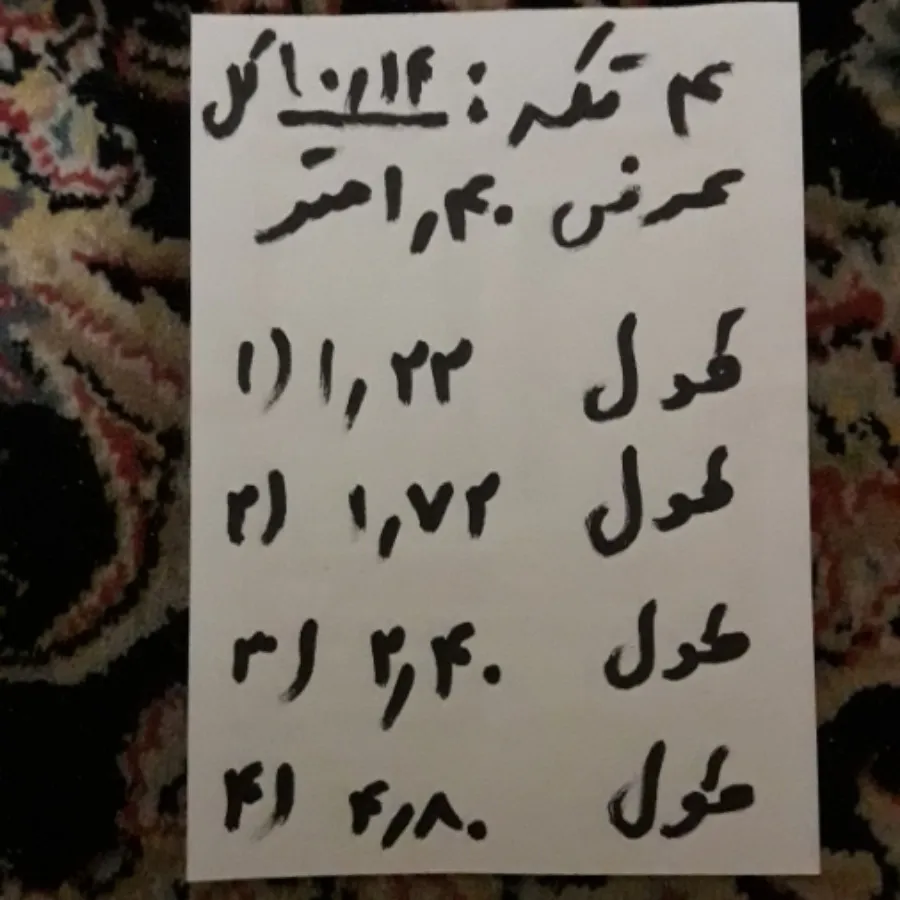 ۴ تکه : ۱۰,۱۴ کل
عرض ۱,۴۰ متر
طول ۱,۲۲ (۱
طول ۱,۷۲ (۲
طول ۲,۴۰ (۳
طول ۴,۸۰ (۴